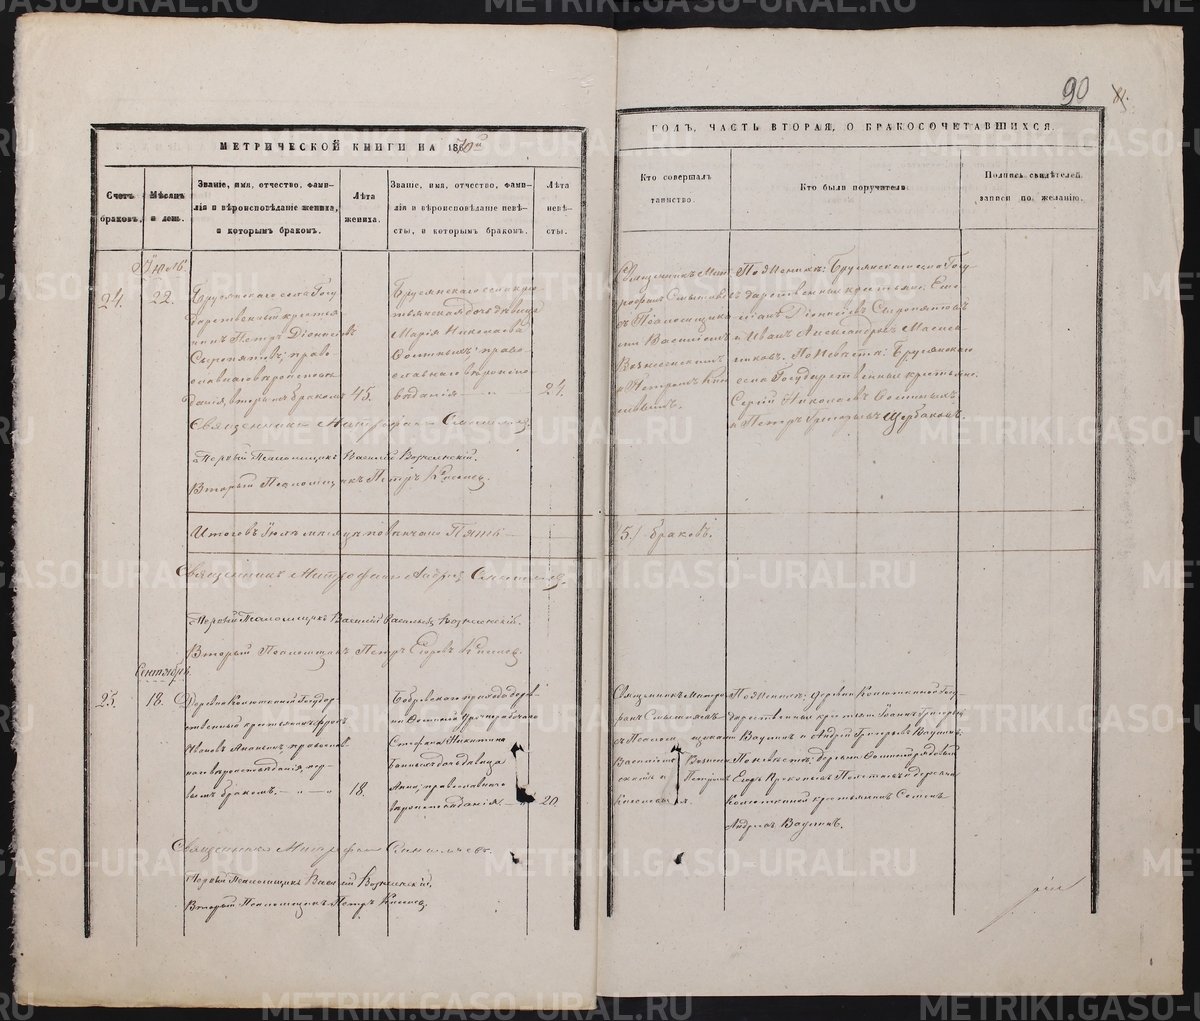 90
МЕТРИЧЕСКОЙ КНИГИ НА 18
ГОДЪ, ЧАСТЬ ВТОРАЯ, О БРАКОСОЧЕТАВШИХСЯ.
Счетъ браковъ.
Мѣсяцъ и день.
Званіе, имя, отчество, фами-
лія и вѣроисповѣданіе жениха,
и которымъ бракомъ.
Лѣта
жениха.
Званіе, имя, отчество, фами-
лія и вѣроисповѣданіе невѣ-
сты, и которымъ бракомъ.
Лѣта
невѣ-
сты.
Кто совершалъ
таинство.
Кто были поручатели.
Подпись свидѣтелей
записи по желанію.
24.
22.
Брусянскаго села Госу-
дарственный крестья-
нинъ Петръ Діонисіевъ
Сыропятовъ; право-
славнаго вѣроисповѣ-
данія, вторымъ бракомъ
45.
Брусянскаго села кре-
стьянская дочь дѣвица
Марія Николаева
православнаго вѣроиспо-
вѣданія
24.
Священникъ Мит-
рофанъ
съ Псаломщика-
ми Василіемъ
Вознесенскимъ
и Петромъ Ки-
селевымъ.
По Женихѣ: Брусянскаго села Госу-
дарственные крестьяне:
Діонисіевъ Сыропятовъ
и Иванъ Александровъ
По Невѣстѣ: Брусянскаго
села Государственные крестьяне:
Сергій Николаевъ
и Петръ Григорьевъ Щербаковъ.
Священникъ Митрофанъ
Первый Псаломщикъ Василій Вознесенскій.
Вторый Псаломщикъ Петръ Киселевъ.
Итого въ Іюлѣ мѣсяцѣ повѣнчано Пять
/5./ браковъ.
Священникъ Митрофанъ
Первый Псаломщикъ Василій Васильевъ Вознесенскій.
Вторый Псаломщикъ Петръ Егоровъ Киселевъ.
Сентябрь.
25.
18.
Деревни Колюткиной Государ-
ственный крестьянинъ
Ивановъ Ананьинъ, православ-
наго вѣроисповѣданія, пер-
вымъ бракомъ.
18.
Бобровскаго прихода дерев-
ни
Стефана Никитина
дочь дѣвица
Анна, православнаго
вѣроисповѣданія.
20.
Священникъ Митро-
фанъ
съ Псалом-
щиками
Василіемъ Вознесен-
скимъ и Петромъ
Киселевымъ.
По Женихѣ: деревни Колюткиной Госу-
дарственные крестьяне Іоаннъ Григорьевъ
Ваулинъ и Андрей Григорьевъ Ваулинъ.
По невѣстѣ: деревни
Егоръ Прокопьевъ и деревни
Колюткиной крестьянинъ Семенъ
Андреевъ Ваулинъ.
Священникъ Митрофанъ
Первый Псаломщикъ Василій Вознесенскій.
Вторый Псаломщикъ Петръ Киселевъ.
METRIKI.GASO-URAL.RU